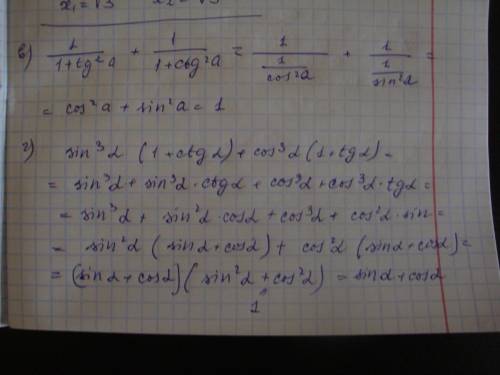 x₁ = √3 x₂ = √3
в) 1/(1+tg²a) + 1/(1+ctg²a) = 1/(1/cos²a) + 1/(1/sin²a) =
= cos²a + sin²a = 1
г) sin³α (1+ctgα) + cos³α (1+tgα) =
= sin³α + sin³α · ctgα + cos³α + cos³α · tgα =
= sin³α + sin²α · cosα + cos³α + cos²α · sin =
= sin²α (sinα + cosα) + cos²α (sinα + cosα) =
= (sinα + cosα) (sin²α + cos²α) = sinα + cosα
1